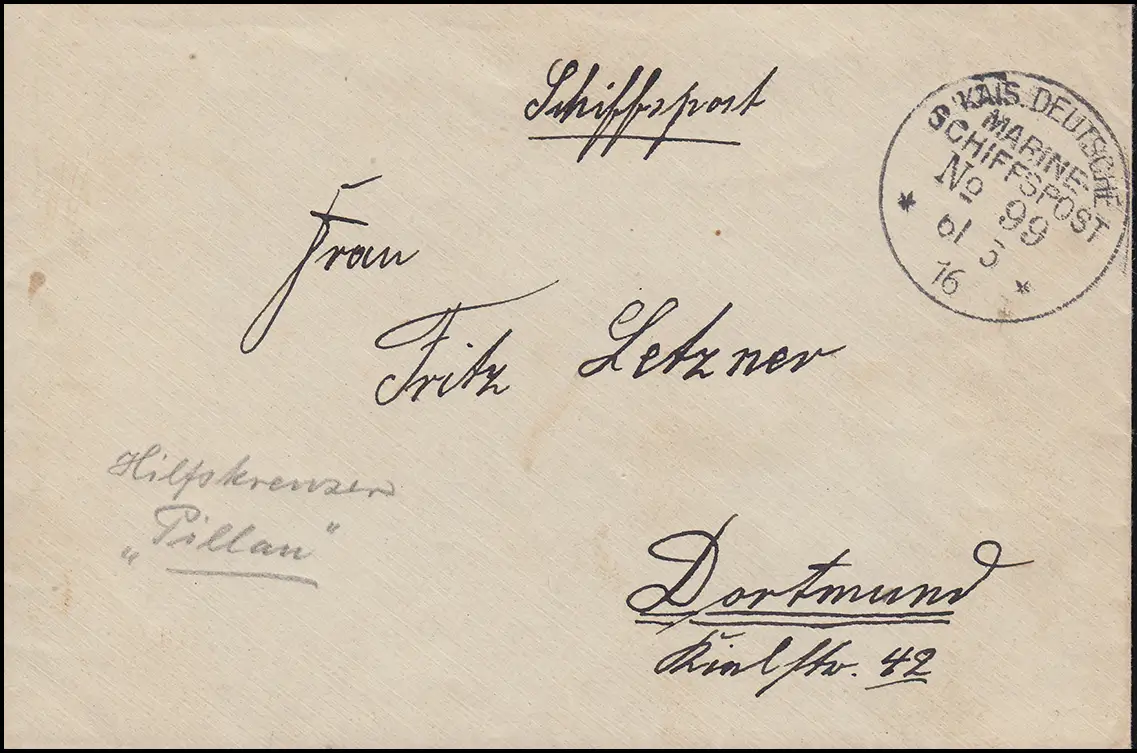 Schiffspost
KAIS. DEUTSCHE
MARINE-
SCHIFFSPOST
No 99
6/ 5
16
Frau
Fritz Letzner
Hilfskreuzer
„Pillau"
Dortmund
42